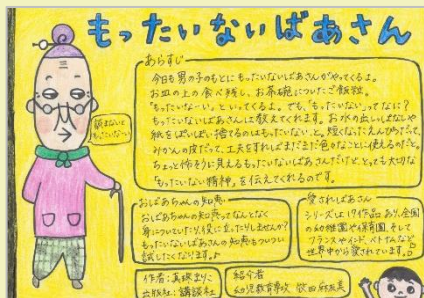 もったいないばあさん
あらすじ
今日も男の子のもとにもったいないばあさんがやってくるよ。
お皿の上の食べ残し、お茶碗についたご飯粒。
「もったいな～い」といってくるよ。でも、「もったいない」ってなに?
もったいないばあさんは教えてくれます。お水の出しっぱなしや
紙をぽいぽい捨てるのはもったいない、と。短くなったえんぴつだって、
みかんの皮だって、工夫をすればまだまだ色々なことに使えるのだと。
ちょっと怖そうに見えるもったいないばあさんだけど、とっても大切な
「もったいない精神」を伝えてくれるのです。
読まないと
もったいない
おばあちゃんの知恵
おばあちゃんの知恵ってなんとなく
身についていたり、役に立ったりしませんか?
もったいないばあさんの知恵もついつい
試したくなります♪
愛さればあさん
シリーズは19作品あり、全国
の幼稚園や保育園、そして
フランスやインド、ベトナムなど
世界中から愛されています。
作者:真珠まりこ
出版社:講談社
紹介者
幼児教育専攻